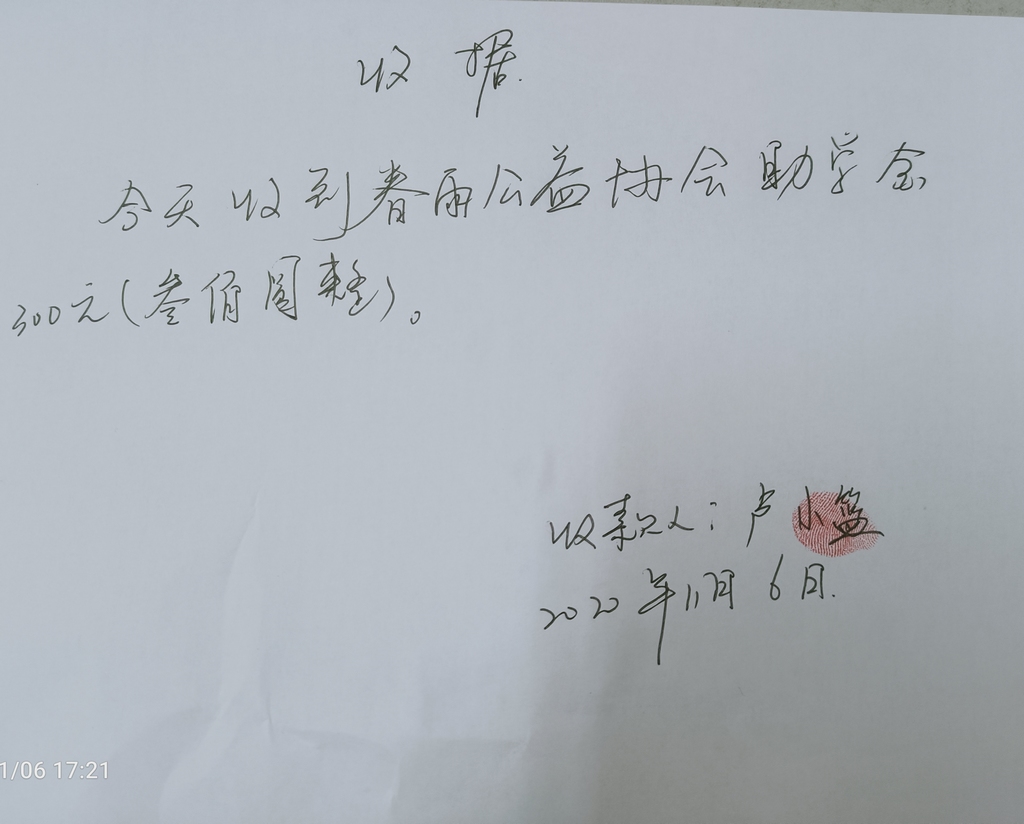 收据.
今天收到春雨公益协会助学金
300元(叁佰圆整)。
收款人：卢小篮
2020年11月6日.
1/06 17:21